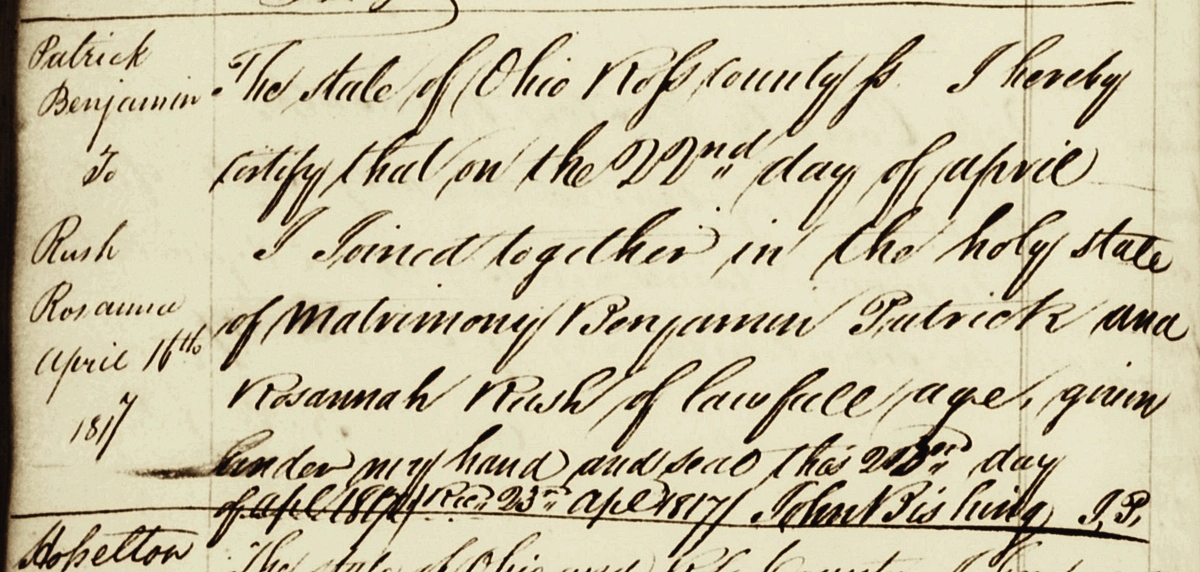 Patrick
Benjamin
To
Rush
Rosanna
April 16th
1817
The state of Ohio Ross County ss. I hereby
certify that on the 22nd day of april
I Joined together in the holy state
of Matrimony Benjamin Patrick and
Rosannah Rush of lawfull age, given
under my hand and seal this day
of apl 1817 Rec. 23rd apl 1817 John J.P.
Hosselton
The state of Ohio